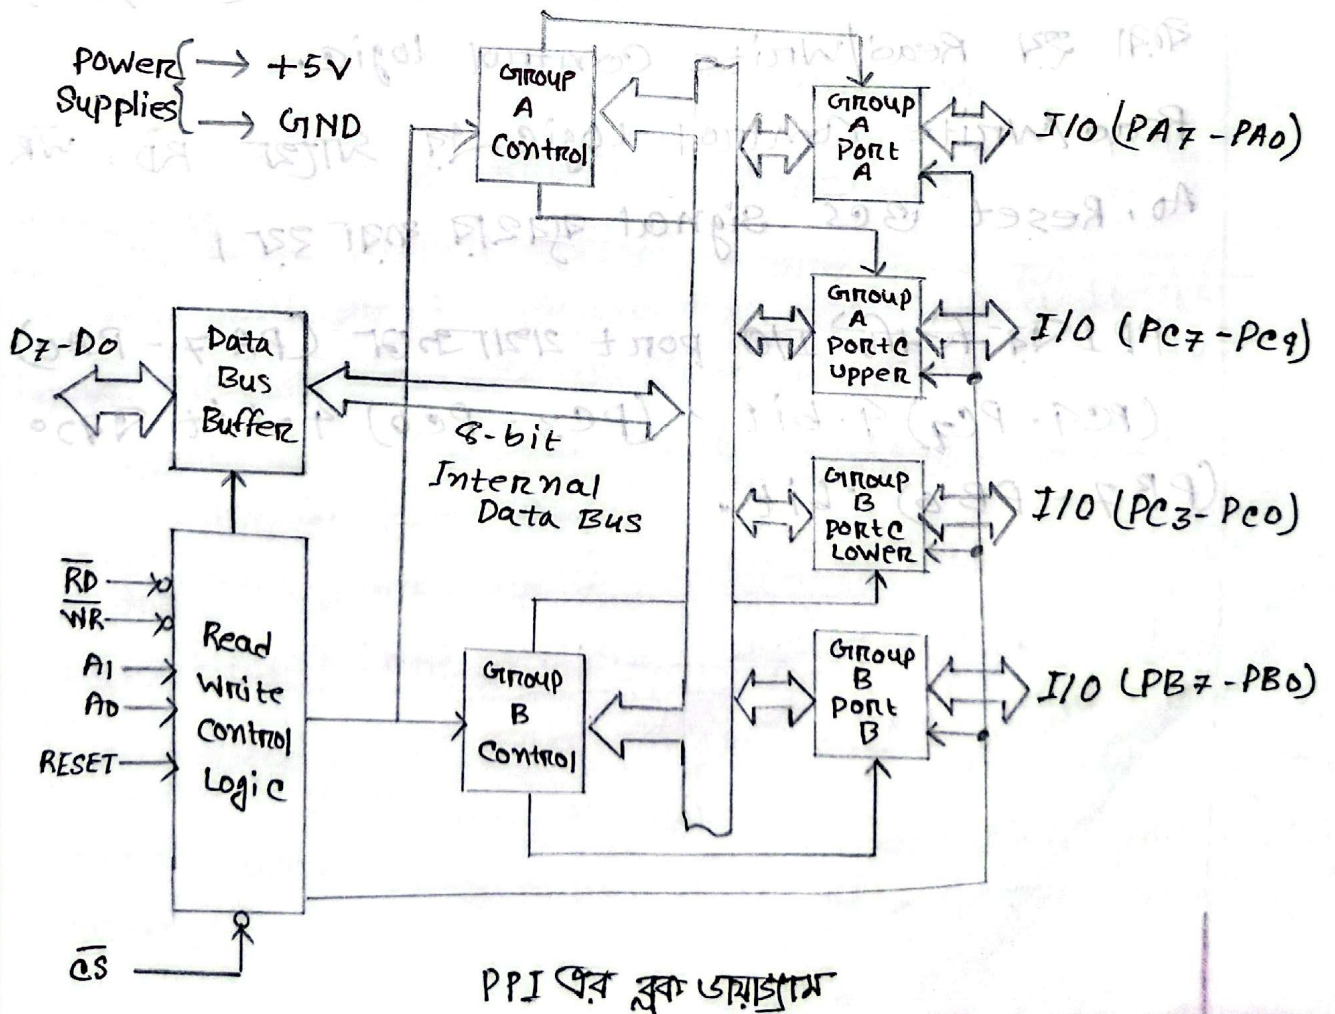 Power Supplies → +5V
→ GND
Group A Control
Group A Port A
I/O (PA7-PA0)
Group A Port C Upper
I/O (PC7-PC4)
D7-D0
Data Bus Buffer
8-bit Internal Data Bus
Group B Port C Lower
I/O (PC3-PC0)
R̅D̅
W̅R̅
A1
A0
RESET
Read Write Control Logic
Group B Control
Group B Port B
I/O (PB7-PB0)
C̅S̅
PPI এর ব্লক ডায়াগ্রাম